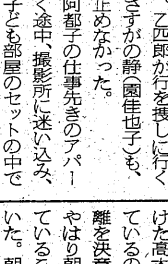 乙四郎が行を捜しに行く
さすがの静（園佳也子）も、
止めなかった。
阿都子の仕事先きのアパー
く途中、撮影所に迷い込み、
子ども部屋のセットの中で
けた高
ているの
離を決意
やはり朝
ているこ
いた。朝